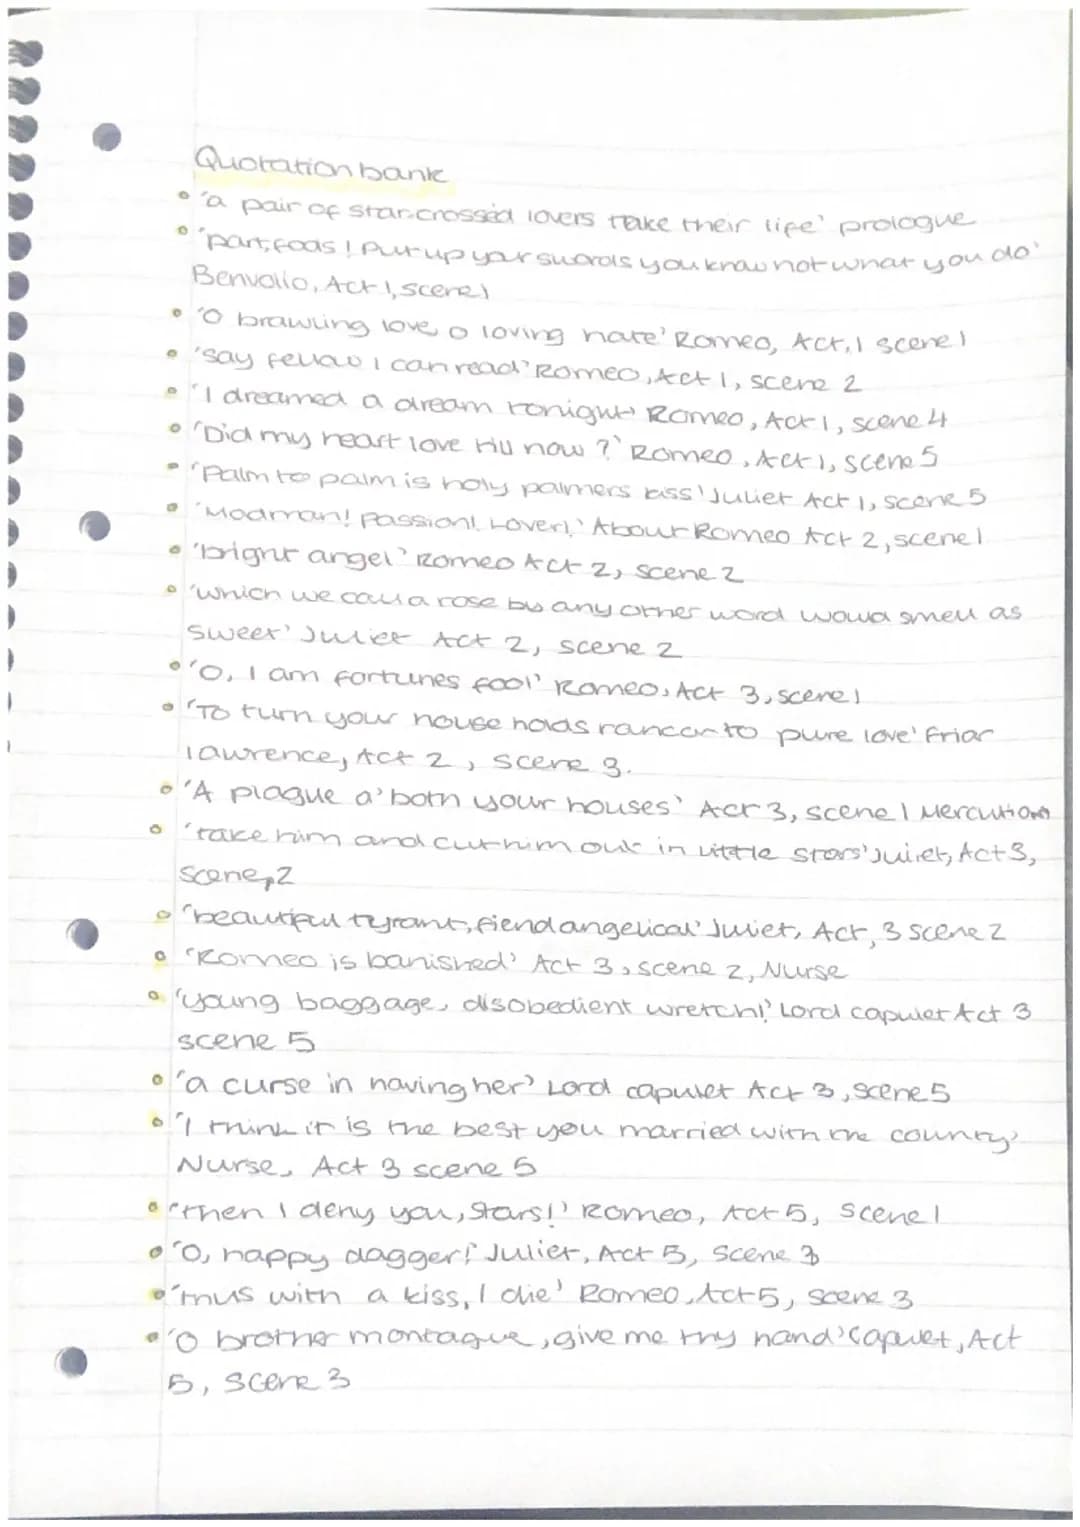 Quotation bank
• 'a pair of star-crossed lovers take their life' prologue
• 'part, fools! Put up your swords you know not what you do'
Benvolio, Act 1, scene 1
• 'O brawling love o loving hate' Romeo, Act, 1 scene 1
• 'say fellow I can read' Romeo, Act 1, scene 2
• 'I dreamed a dream tonight' Romeo, Act 1, scene 4
• 'Did my heart love till now ?' Romeo, Act 1, scene 5
• 'Palm to palm is holy palmers kiss' Juliet Act 1, scene 5
• 'Madman! Passion! Lover!' About Romeo Act 2, scene 1
• 'bright angel' Romeo Act 2, scene 2
• 'which we call a rose by any other word would smell as
sweet' Juliet Act 2, scene 2
• 'O, I am fortunes fool' Romeo, Act 3, scene 1
• 'To turn your house holds rancor to pure love' Friar
lawrence, Act 2, scene 3.
• 'A plague a' both your houses' Act 3, scene 1 Mercution
• 'take him and cut him out in little stars' Juliet, Act 3,
scene, 2
• 'beautiful tyrant, fiend angelical' Juliet, Act, 3 scene 2
• 'Romeo is banished' Act 3, scene 2, Nurse
• 'young baggage, disobedient wretch!' Lord capulet Act 3
scene 5
• 'a curse in having her' Lord capulet Act 3, scene 5
• 'I think it is the best you married with the county'
Nurse, Act 3 scene 5
• 'then I deny you, Stars!' Romeo, Act 5, Scene 1
• 'O, happy dagger!' Juliet, Act 5, Scene 3
• 'thus with a kiss, I die' Romeo, Act 5, scene 3
• 'O brother montague, give me thy hand' Capulet, Act
5, scene 3